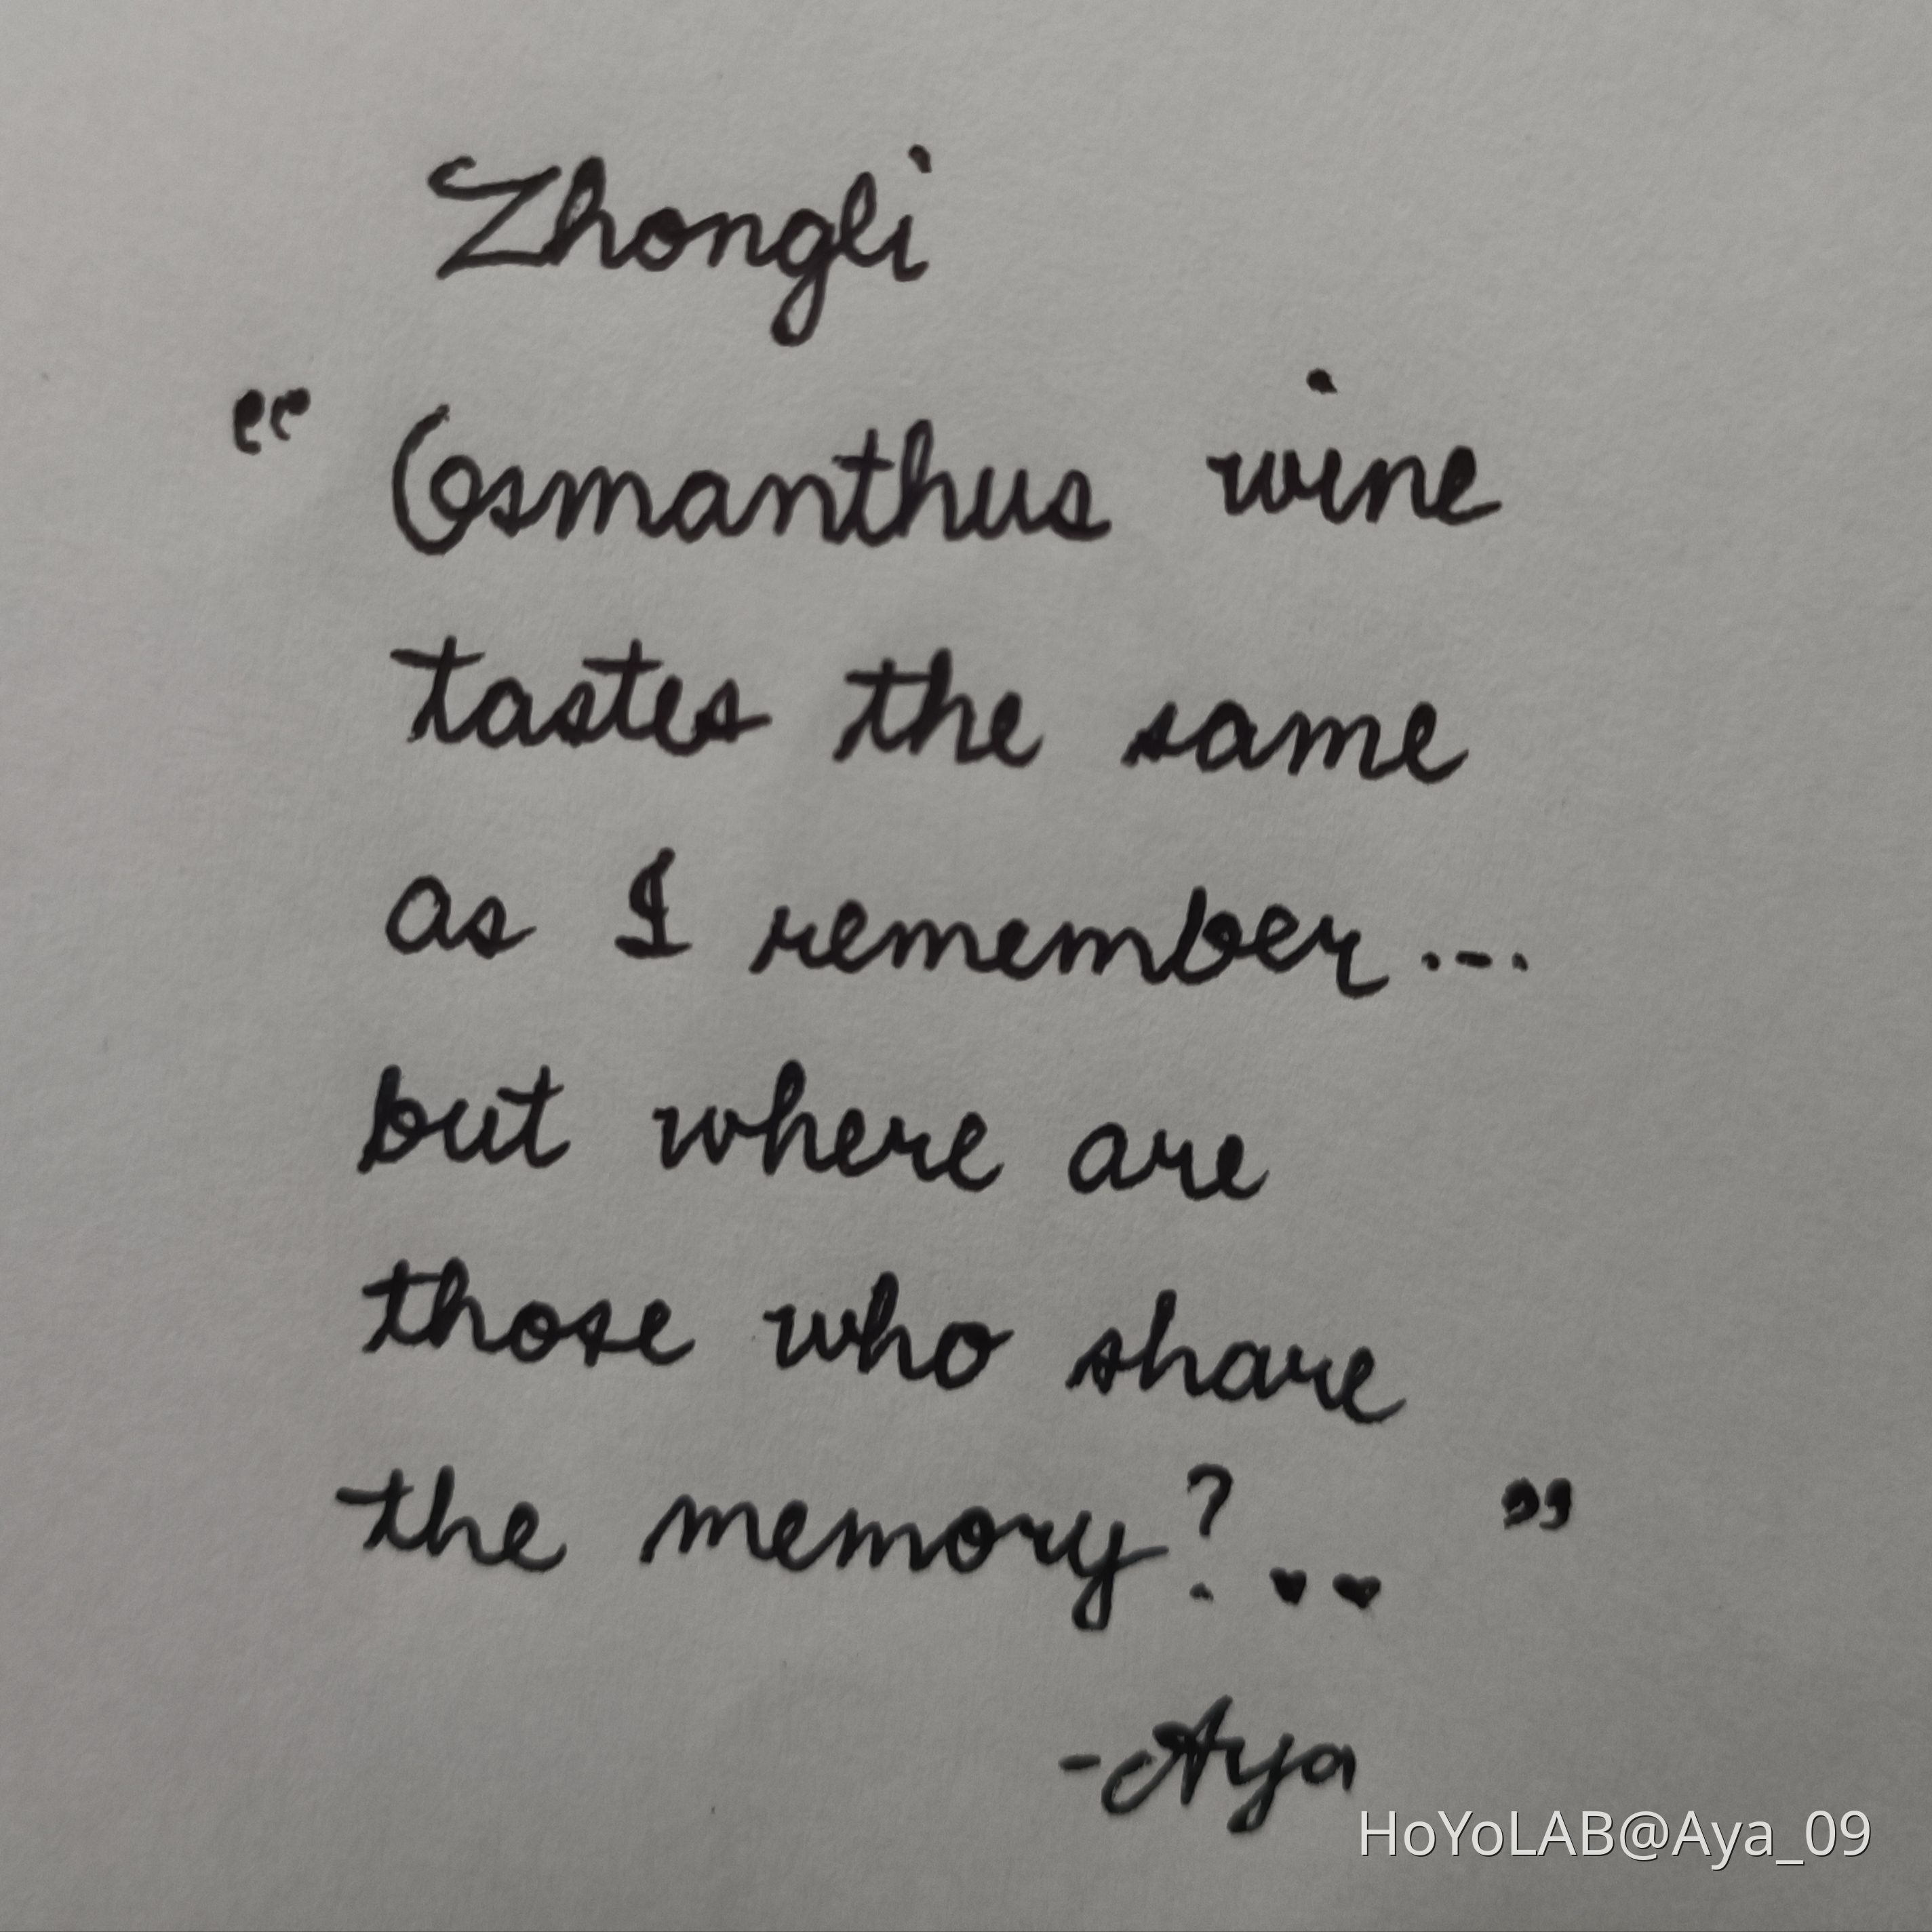 Zhongli
“ Osmanthus wine
tastes the same
as I remember...
but where are
those who share
the memory?.. ”
-Aya
HoYoLAB@Aya_09